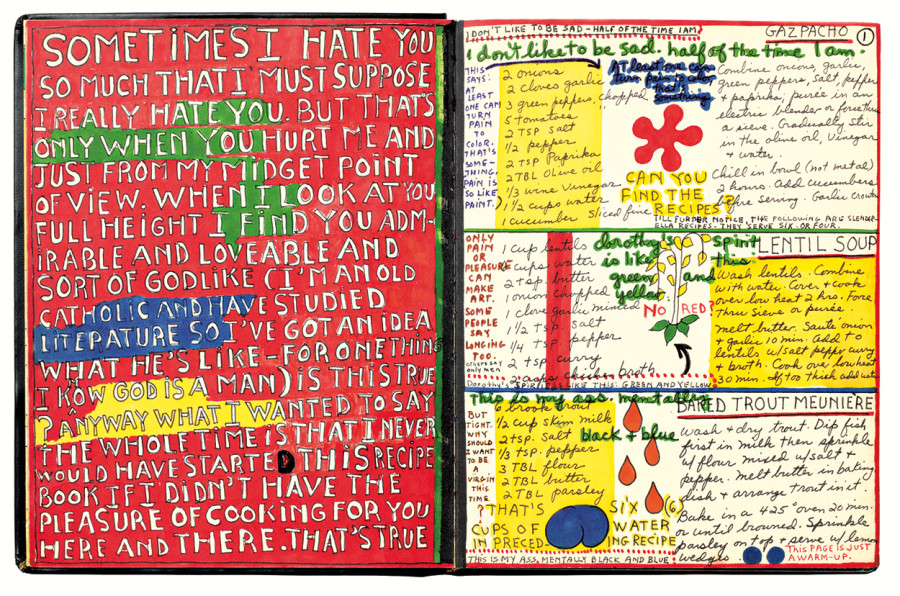 SOMETIMES I HATE YOU
SO MUCH THAT I MUST SUPPOSE
I REALLY HATE YOU. BUT THAT'S
ONLY WHEN YOU HURT ME AND
JUST FROM MY MIDGET POINT
OF VIEW. WHEN I LOOK AT YOU
FULL HEIGHT I FIND YOU ADM-
IRABLE AND LOVEABLE AND
SORT OF GODLIKE (I'M AN OLD
CATHOLIC AND HAVE STUDIED
LITERATURE SO I'VE GOT AN IDEA
WHAT HE'S LIKE - FOR ONE THING
I KNOW GOD IS A MAN) IS THIS TRUE
? ANYWAY WHAT I WANTED TO SAY
THE WHOLE TIME IS THAT I NEVER
WOULD HAVE STARTED THIS RECIPE
BOOK IF I DIDN'T HAVE THE
PLEASURE OF COOKING FOR YOU
HERE AND THERE. THAT'S TRUE
I DON'T LIKE TO BE SAD - HALF OF THE TIME I AM.
GAZPACHO
1
i don't like to be sad. half of the time I am.
THIS
SAYS:
AT
LEAST
ONE CAN
TURN
PAIN
TO
COLOR.
THAT'S
SOME-
THING.
PAIN IS
SO LIKE
PAINT.)
2 onions
2 cloves garlic
3 green peppers, chopped
5 tomatoes
2 TSP salt
1/2 pepper
2 TSP Paprika
2 TBL Olive oil
1/3 wine vinegar
1 1/2 cups water
1 cucumber sliced fine
AT least one can
turn pain to color
that's
something
CAN YOU
FIND THE
RECIPES?
Combine onions, garlic,
green peppers, salt, pepper
+ paprika, purée in an
electric blender or force thru
a sieve. Gradually stir
in the olive oil, vinegar
+ water.
Chill in bowl (not metal)
2 hours. Add cucumbers
before serving. Garlic Croutons
TILL FURDER NOTICE, THE FOLLOWING ARE SLENDER-
ELLA RECIPES. THEY SERVE SIX OR FOUR.
ONLY
PAIN
OR
PLEASURE
CAN
MAKE
ART.
SOME
PEOPLE
SAY
LONGING
TOO.
only men
1 cup lentils
cups water
2 tsp. butter
1 onion chopped
1 clove garlic minced
1 1/2 tsp. salt
1/4 tsp. pepper
2 tsp. curry
2 cups chicken broth
dorothy's spirit
is like this
green and
yellow.
NO RED?
LENTIL SOUP
Wash lentils. Combine
with water. Cover + cook
over low heat 2 hrs. Force
thru sieve or purée.
melt butter. Saute onion
+ garlic 10 min. Add to
lentils w/salt pepper curry
+ broth. Cook over low heat
30 min. If too thick add water
Dorothy's SPIRIT IS LIKE THIS: GREEN AND YELLOW
This is my ass. mentally
black + blue
BUT
TIGHT.
WHY
SHOULD
I WANT
TO BE
A
VIRGIN
THIS
TIME
?
6 brook trout
1/2 cup skim milk
2 tsp. salt
1/3 tsp. pepper
3 TBL flour
2 TBL butter
2 TBL parsley
THAT'S SIX (6)
CUPS OF WATER
IN PRECED- ING RECIPE
BAKED TROUT MEUNIERE
wash + dry trout. Dip fish
first in milk then sprinkle
w/ flour mixed w/salt +
pepper. melt butter in baking
dish + arrange trout in it
Bake in a 425° oven 20 min.
or until browned. Sprinkle
parsley on top + serve w/ lemon
wedges
THIS PAGE IS JUST
A WARM-UP.
THIS IS MY ASS, MENTALLY BLACK AND BLUE